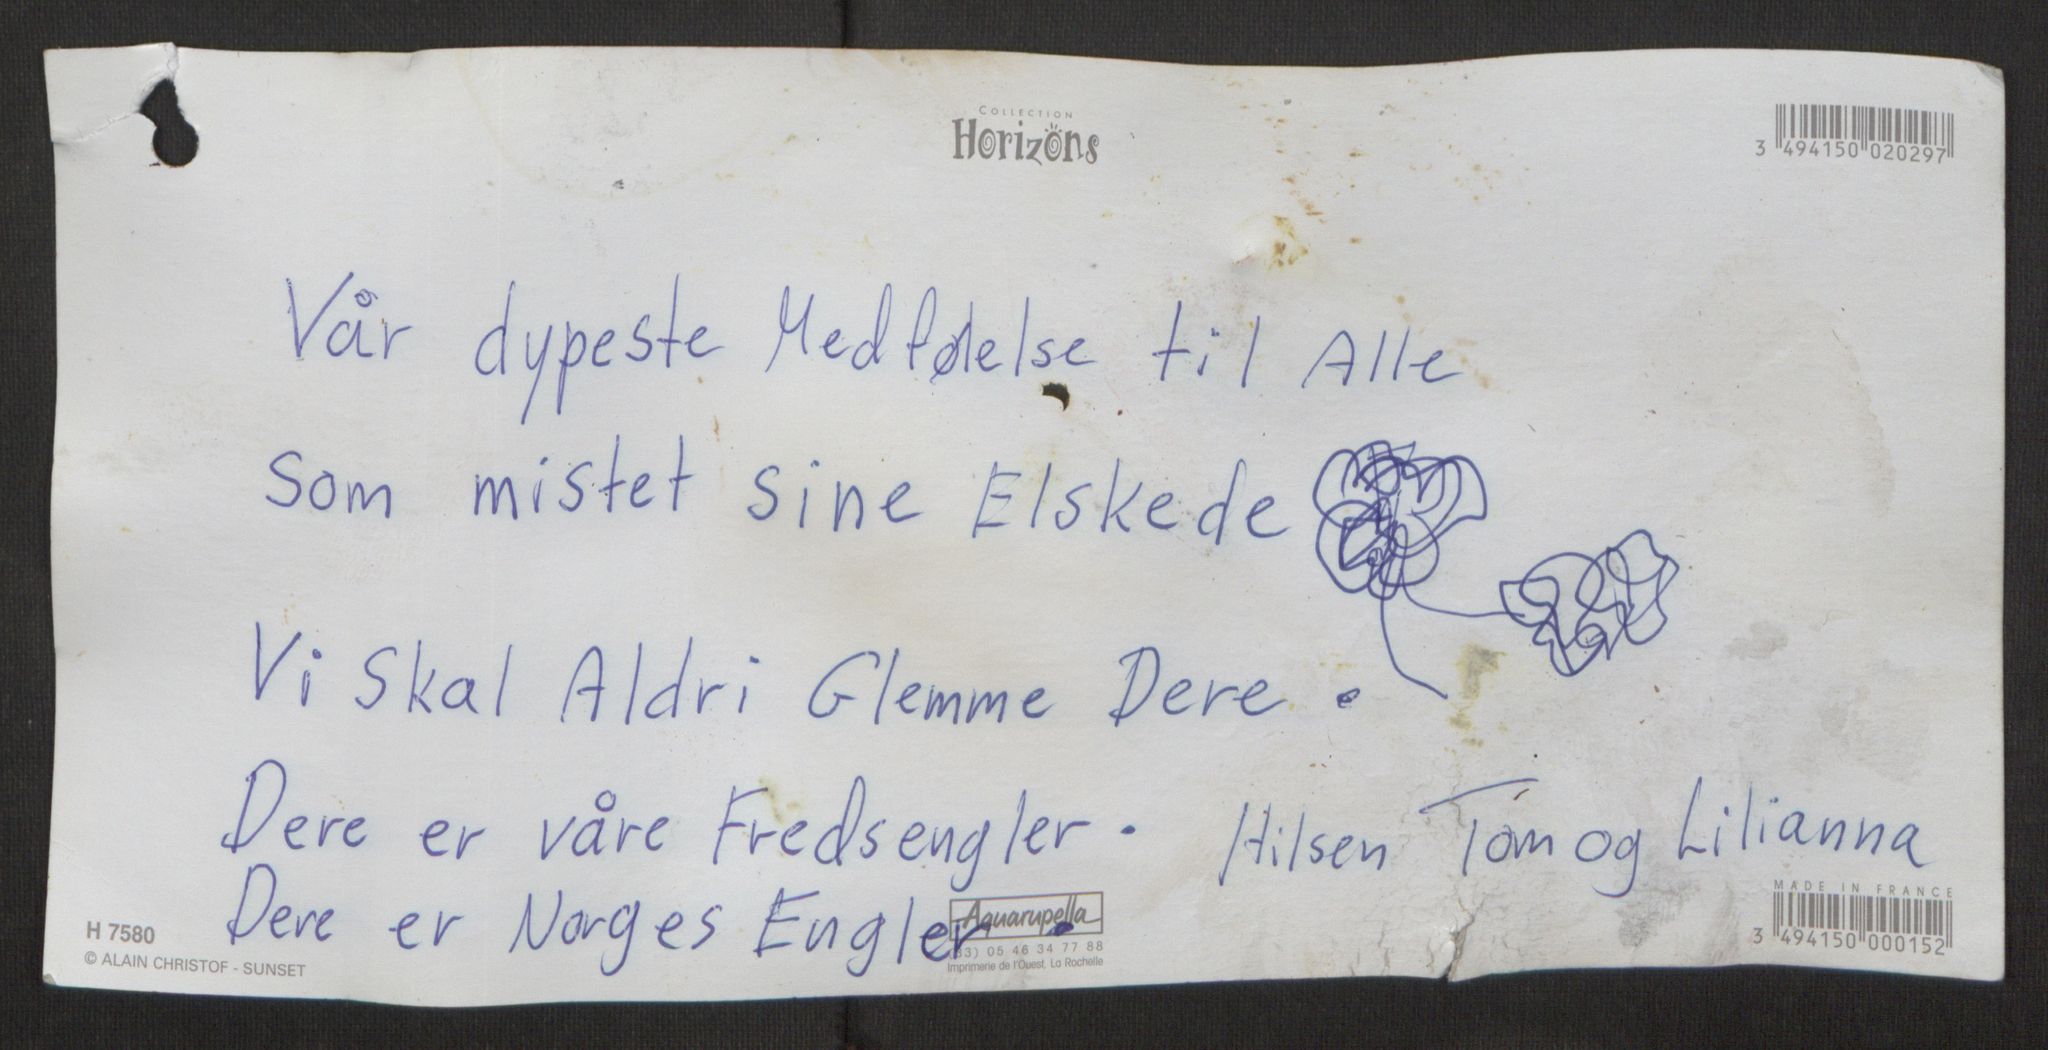 COLLECTION
Horizons
3 494150 020297
Vår dypeste Medfølelse til Alle
som mistet sine Elskede
Vi Skal Aldri Glemme Dere.
Dere er våre Fredsengler. Hilsen Tom og Lilianna
Dere er Norges Engler.
H 7580
© ALAIN CHRISTOF - SUNSET
Aquarupella
(33) 05 46 34 77 88
Imprimerie de l'Ouest, La Rochelle
MADE IN FRANCE
3 494150 000152